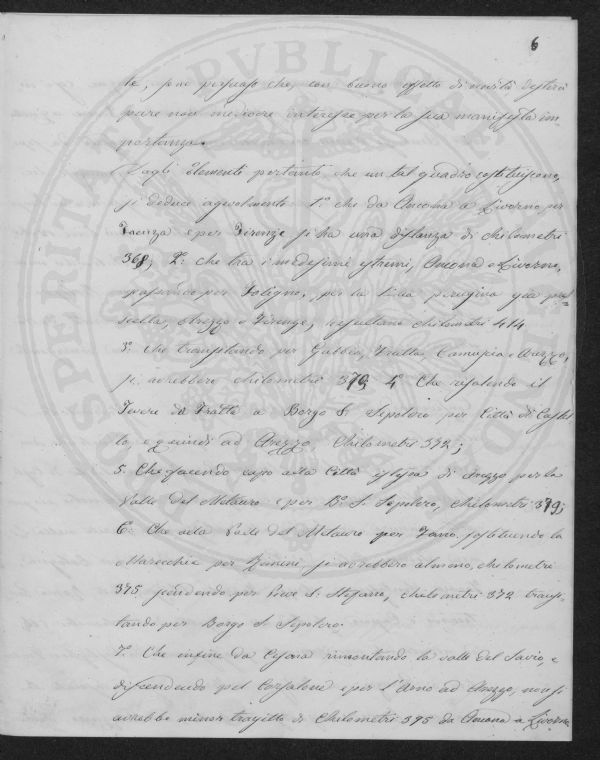 6
te, sono persuaso che, con buono effetto di novità desterà
pure non mediocre interesse per la sua manifesta im-
portanza.
Dagli elementi pertanto che un tal quadro costituiscono,
si deduce agevolmente: 1.° che da Ancona a Livorno per
Faenza e per Firenze si ha una distanza di chilometri
368; 2.° che tra i medesimi estremi, Ancona e Livorno,
passando per Foligno, per la linea perugina già pre-
scelta, Arezzo e Firenze, risultano chilometri 414
3.° che transitando per Gubbio, Fratta, Camuscia e Arezzo,
si avrebbero chilometri 379; 4.° Che risalendo il
Tevere da Fratta a Borgo S. Sepolcro per Città di Castel-
lo, e quindi ad Arezzo Chilometri 372;
5. Che facendo capo alla Città istessa di Arezzo per la
Valle del Metauro e per B.° S. Sepolcro, chilometri 319;
6.° Che alla Valle del Metauro per Fano sostituendo la
Marecchia per Rimini si avrebbero almeno, chilometri
375 scendendo per Pieve S. Stefano, chilometri 372 transi-
tando per Borgo S. Sepolcro.
7.° Che infine da Cesena rimontando la valle del Savio, e
discendendo pel Corsalone e per l'Arno ad Arezzo, non si
avrebbe minor tragitto di Chilometri 395 da Ancona a Livorno
PROSPERITATI PVBLICAE